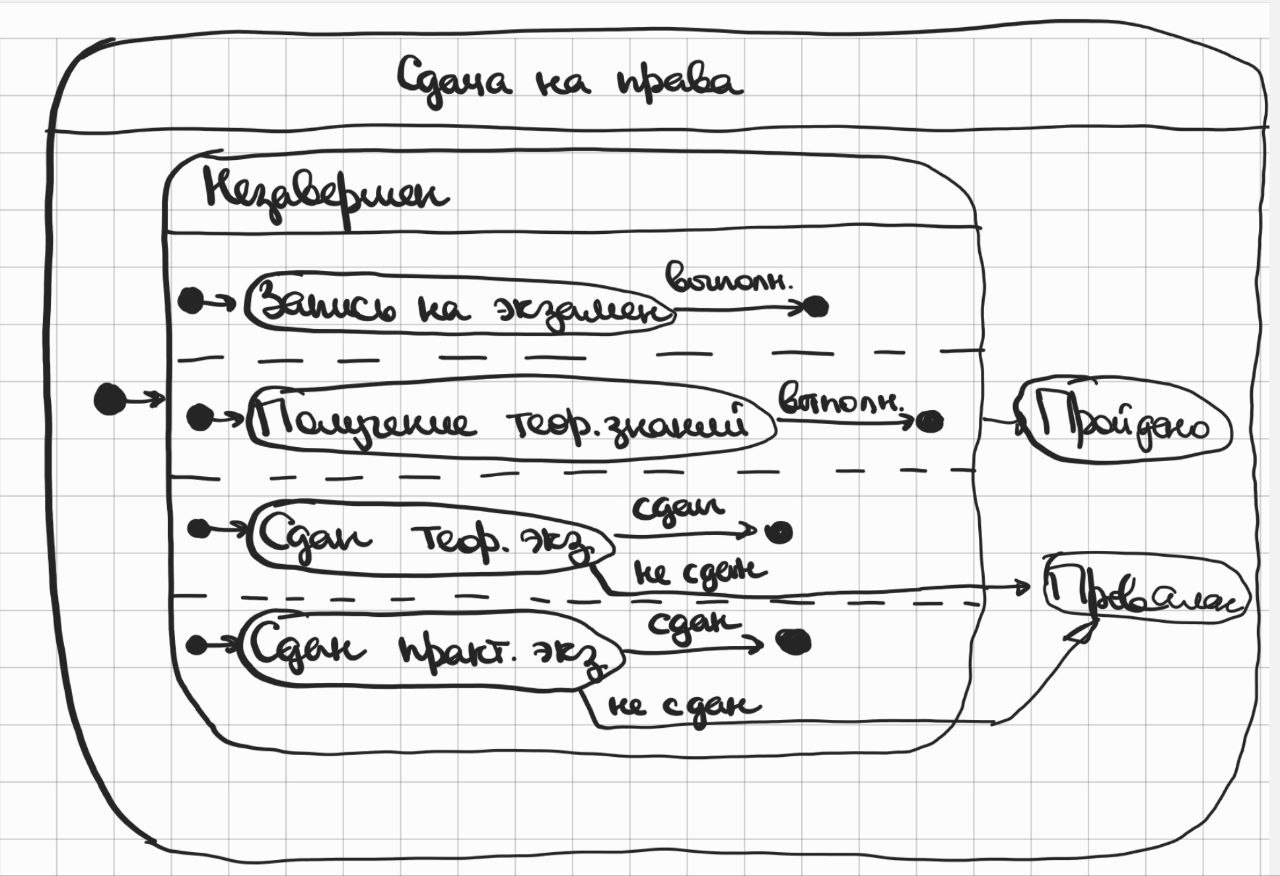 Сдача на права
Незавершен
Запись на экзамен
выполн.
Получение теор. знаний
выполн.
Пройдено
Сдан теор. экз.
сдан
не сдан
Провален
Сдан практ. экз.
сдан
не сдан